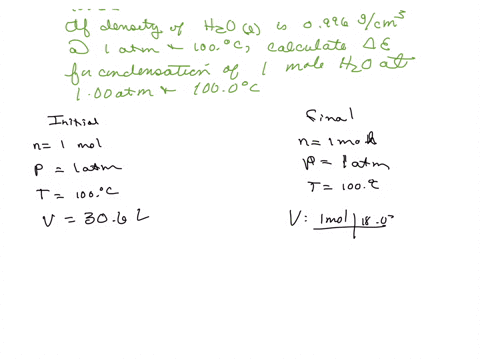 If density of H2O (l) is 0.996 g/cm3
@ 1 atm & 100.°C, calculate ΔE
for condensation of 1 mole H2O at
1.00 atm & 100.0°C
Initial
n = 1 mol
P = 1 atm
T = 100.°C
V = 30.6 L
Final
n = 1 mol
P = 1 atm
T = 100.°C
V: 1 mol | 18.0